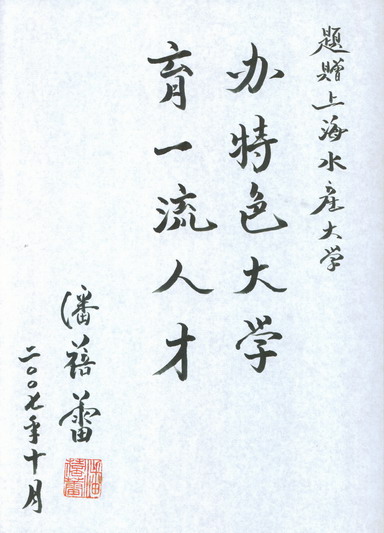 题赠上海水产大学
办特色大学
育一流人才
潘蓓蕾
二〇〇七年十月